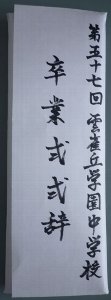 第五十七回 雲雀丘学園中学校
卒業式式辞